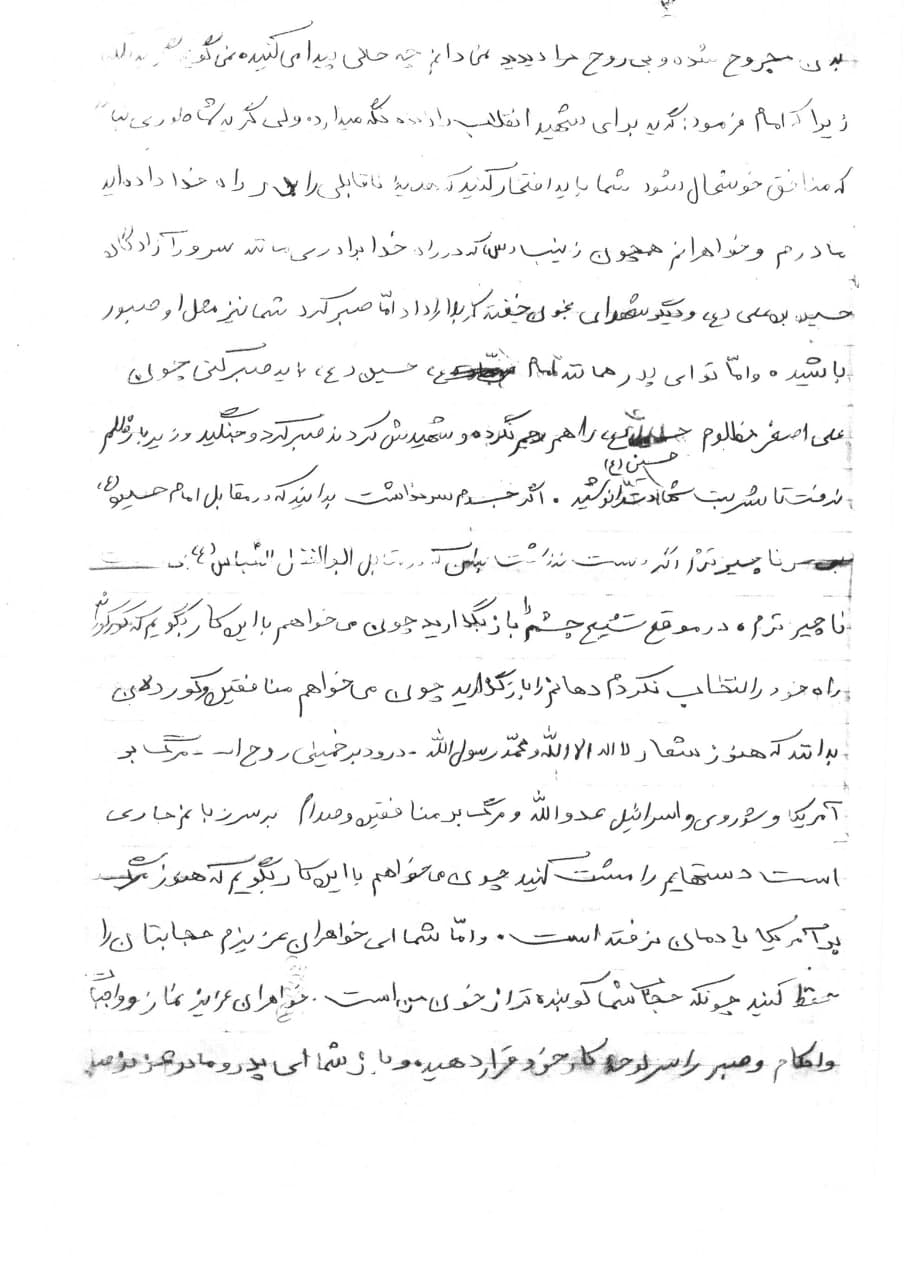 ۳
بدن مجروح شده و بی روح مرا دیدید نمی دانم چه حالی پیدا می کنید، نمی گویم
زیرا که امام فرمود: گریه برای شهید انقلاب را زنده نگه میدارد، ولی گریه شما طوری
که منافق خوشحال شود شما باید افتخار کنید که هدیهٔ ناقابلی را در راه خدا داده اید
مادرم و خواهرانم همچون زینب باش که در راه خدا برادری مانند سرور آزادگان
حسین بن علی (ع) و دیگر شهدای بخون خفته کربلا را داد امّا صبر کرد شما نیز مثل او صبور
باشید. وامّا تو ای پدر همانند امام حسین (ع) باید صبر کنی چون
علی اصغر مظلوم را هم رحم نکرده و شهیدش کردند صبر کرد و جنگید و زیر بار ظلم
حسین (ع)
نرفت تا شربت شهادت را نوشید. اگر جسدم سر نداشت بدانید که در مقابل امام حسین (ع)
ناچیزترم اگر دست نداشت بدان که در مقابل ابوالفضل العباس (ع)
ناچیزترم، در موقع تشییع چشمم را باز بگذارید چون می خواهم با این کار بگویم که کورکورانه
راه خود را انتخاب نکردم دهانم را باز بگذارید چون می خواهم منافقین و کوردلان
بدانند که هنوز شعار لا اله الا الله و محمّد رسول الله - درود بر خمینی روح الله - مرگ بر
آمریکا و شوروی و اسرائیل عدو الله و مرگ بر منافقین و صدام بر سر زبانم جاری
است دستهایم را مشت کنید چون می خواهم با این کار بگویم که هنوز مرگ
بر آمریکا یادمان نرفته است. وامّا شما ای خواهران عزیزم حجابتان را
حفظ کنید چونکه حجاب شما کوبنده تر از خون من است. خواهران عزیز نماز و واجبات
و احکام و صبر را سرلوحه کار خود قرار دهید، و باز شما ای پدر و مادر عزیزم